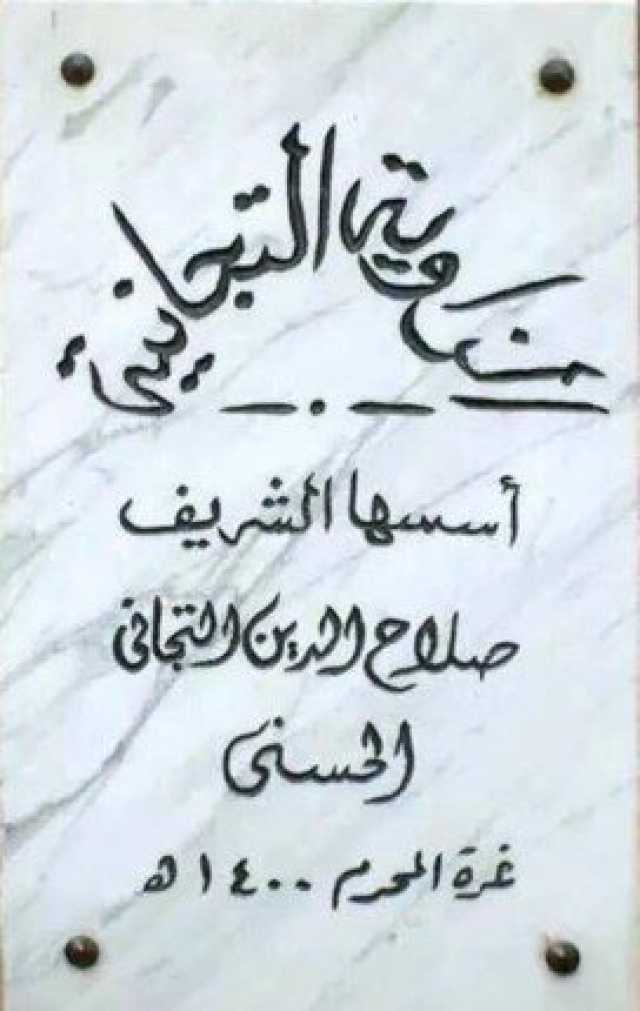 التجانية
أسسها الشريف
صلاح الدين التجانى
الحسنى
غرة المحرم ١٤٠٠ ھ